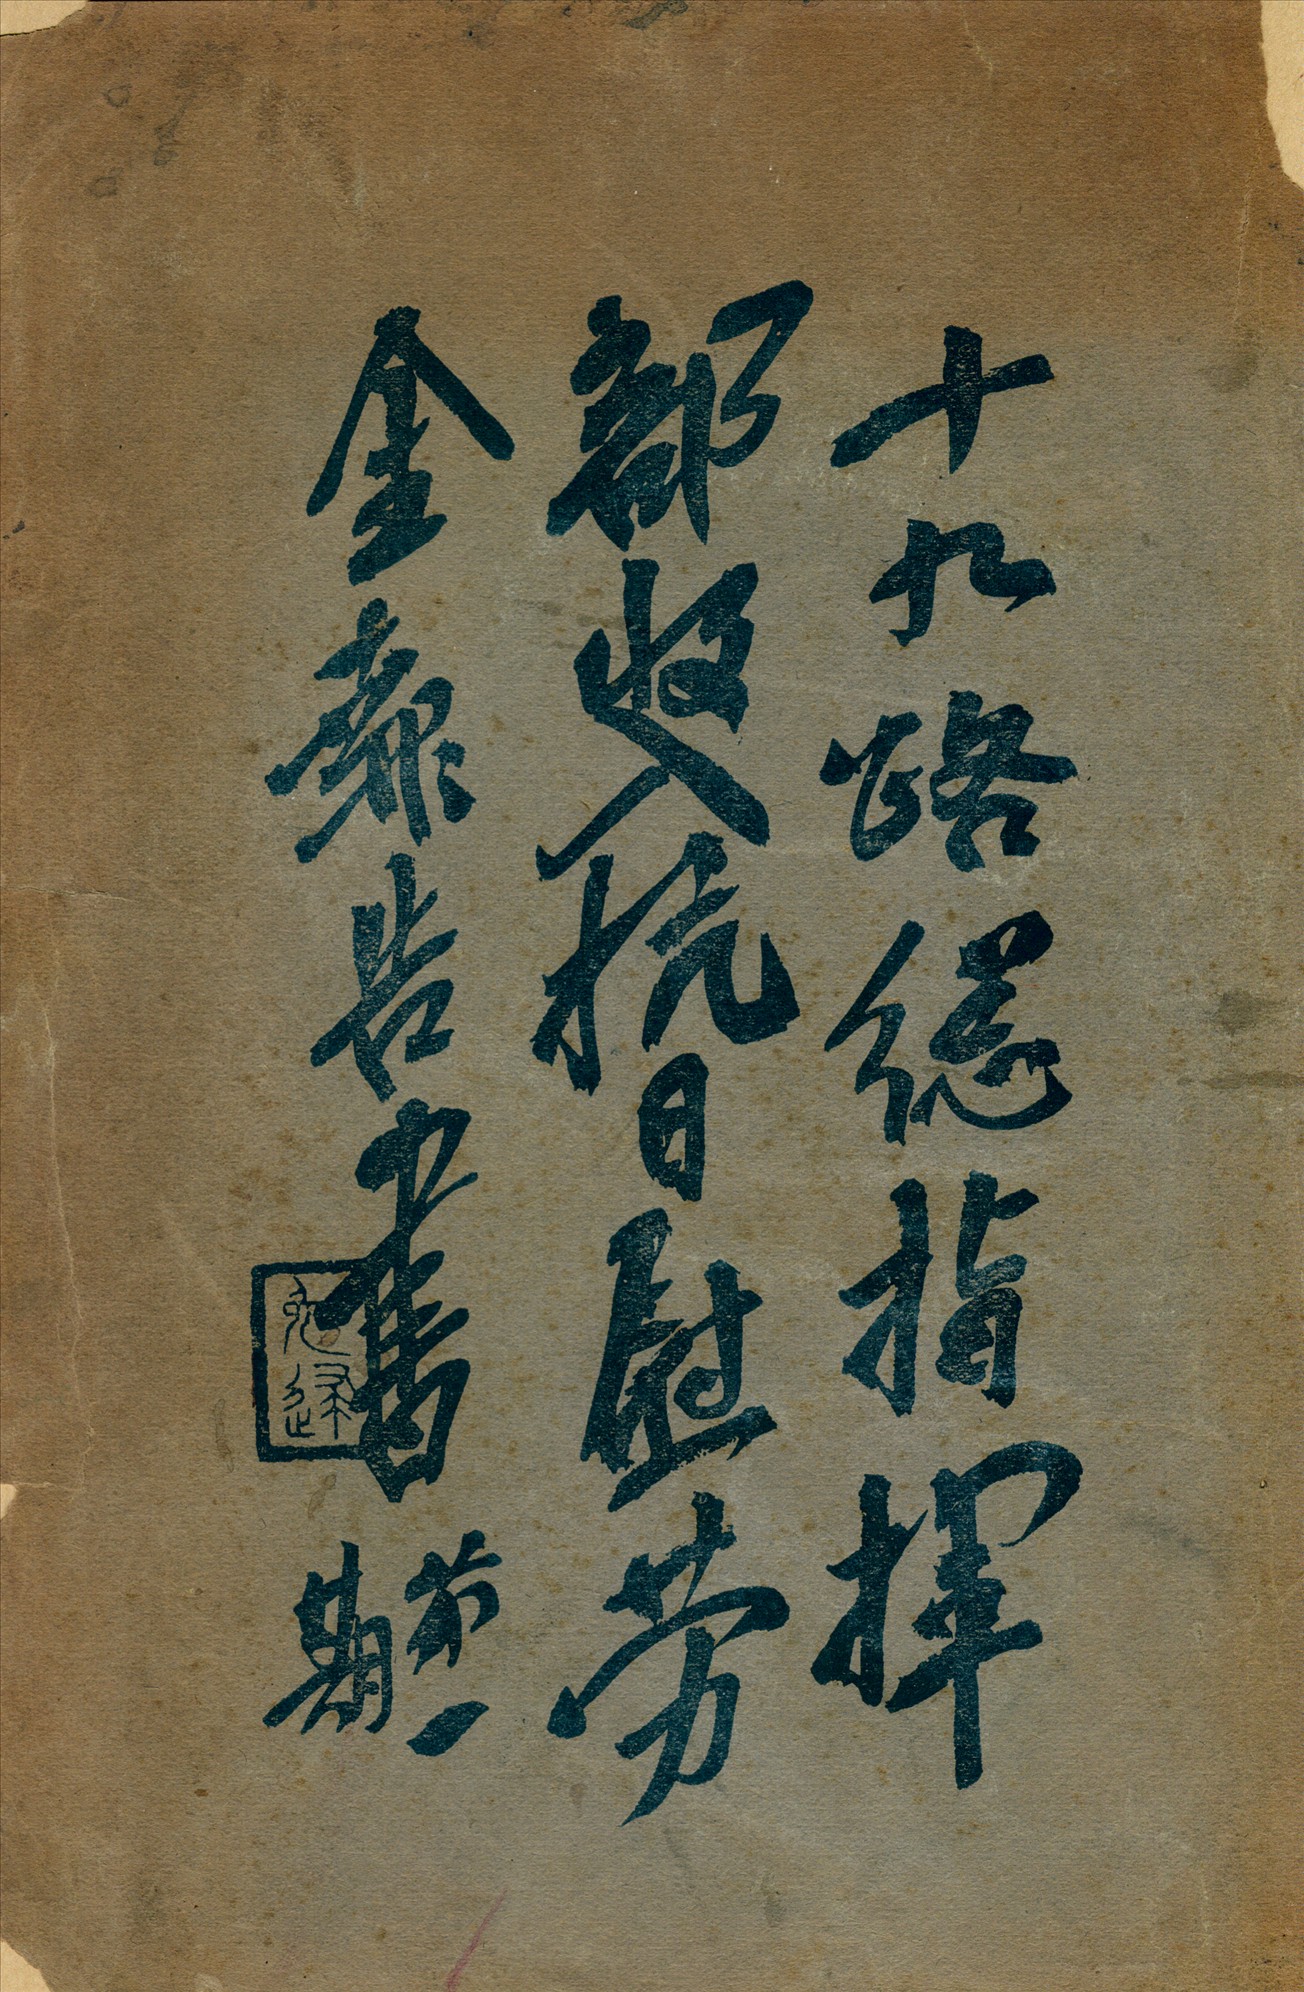 十九路總指揮
部收入抗日慰劳
金報告書 第一期